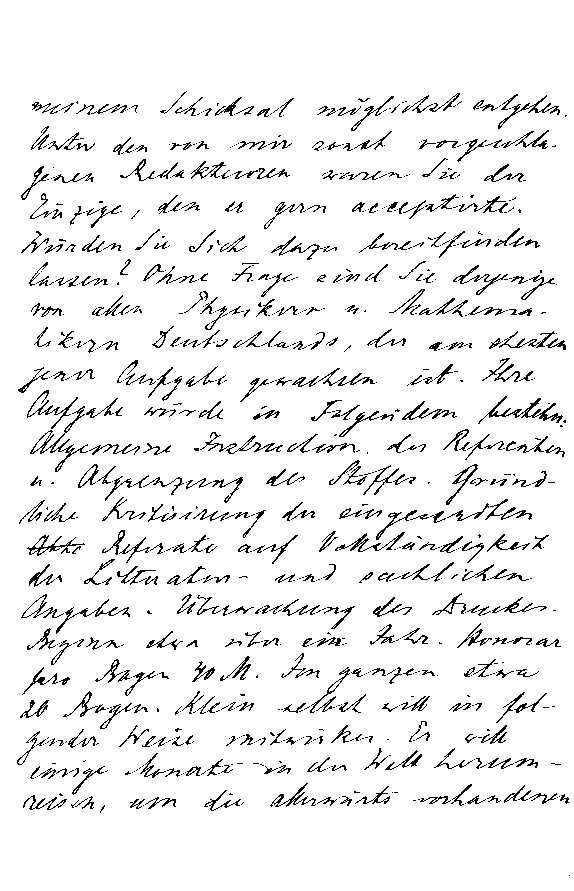 meinem Schicksal möglichst entgehen.
Unter den von mir sonst vorgeschla-
genen Redakteuren waren Sie der
Einzige, den er gern acceptirte.
Würden Sie Sich dazu bereitfinden
lassen? Ohne Frage sind Sie derjenige
von allen Physikern u. Mathema-
tikern Deutschlands, der am ehesten
jener Aufgabe gewachsen ist. Ihre
Aufgabe würde in Folgendem bestehn.
Allgemeine Instruction der Referenten
u. Abgrenzung des Stoffes. Gründ-
liche Kritisirung der eingesandten
Referate auf Vollständigkeit
der Litteratur- und sachlichen
Angaben. Überwachung des Druckes.
Beginn etwa über ein Jahr. Honorar
pro Bogen 40 M. Im ganzen etwa
20 Bogen. Klein selbst will in fol-
gender Weise mitwirken. Er will
einige Monate in der Welt herum-
reisen, um die allerwärts vorhandenen